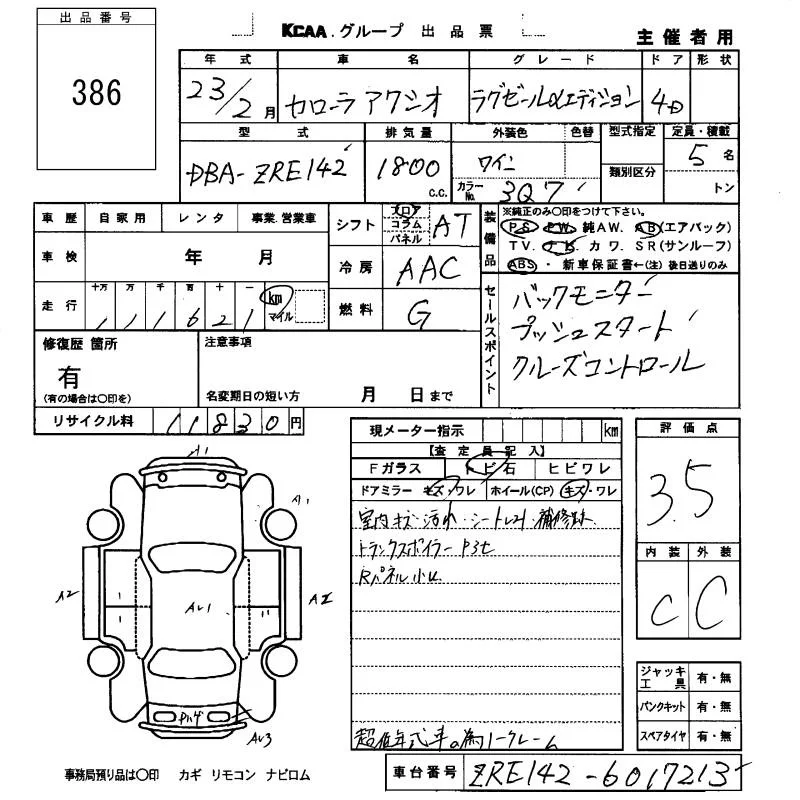 出品番号
386
KCAA.グループ 出品票
主催者用
年式 車名 グレード ドア 形状
23/2月 カローラアクシオ ラグゼールαエディション 4D
型式 排気量 外装色 色替 型式指定 定員・積載
DBA-ZRE142 1800 c.c. ワイン 5名
類別区分 トン
カラーNo. 3Q7
車歴 自家用 レンタ 事業.営業車
シフト フロア コラム パネル AT
装備品
※純正のみ〇印をつけて下さい。
PS PW 純AW. AB(エアバック)
TV. ナビ カワ. SR(サンルーフ)
ABS ・ 新車保証書←(注) 後日送りのみ
車検 年 月
冷房 AAC
走行 十万 万 千 百 十 一
111621 km マイル
燃料 G
セールスポイント
バックモニター
プッシュスタート
クルーズコントロール
修復歴 箇所
有
(有の場合は〇印を)
注意事項
名変期日の短い方 月 日まで
リサイクル料 11830円
現メーター指示 km
【査定員記入】
Fガラス トビ石 ヒビワレ
ドアミラー キズ・ワレ ホイール(CP) キズ・ワレ
室内キズ・汚れ・シート 補修跡
トランクスポイラー
Rパネル小
車の為ノークレーム
評価点
3.5
内装 外装
C C
A1
A1
A2
AU1
AU3
ジャッキ工具 有・無
パンクキット 有・無
スペアタイヤ 有・無
事務局預り品は〇印 カギ リモコン ナビロム
車台番号 ZRE142-6017213